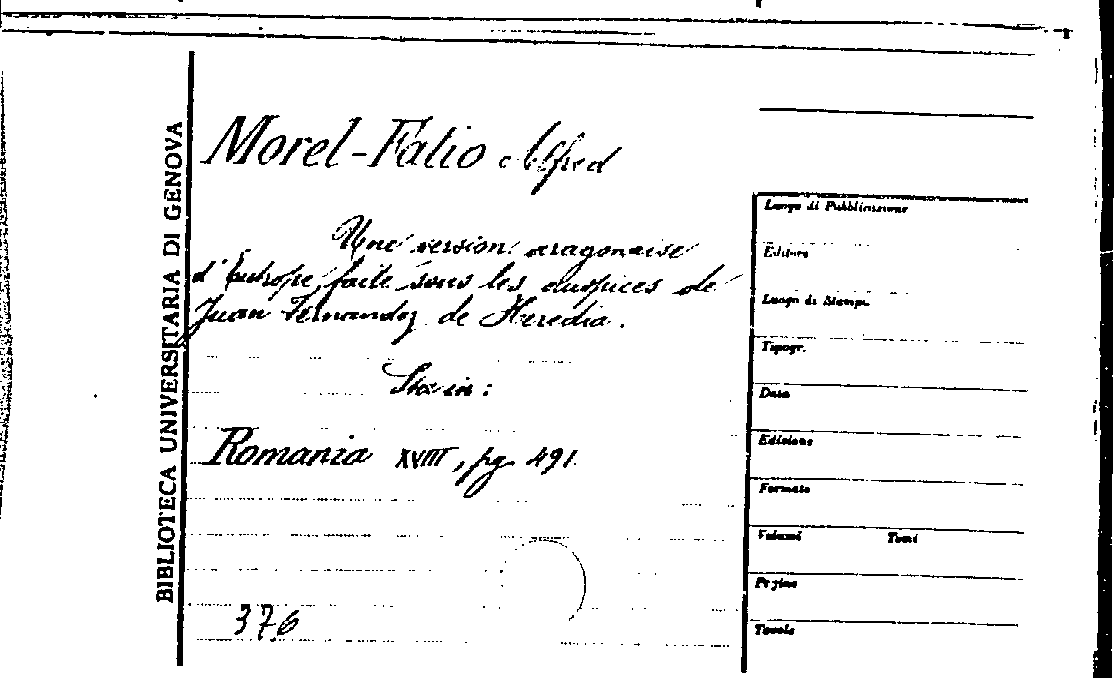 BIBLIOTECA UNIVERSITARIA DI GENOVA
Morel-Fatio Alfred
Une version aragonaise
d'Eutrope, faite sous les auspices de
Juan Fernandez de Heredia.
Sta in:
Romania XVIII, pg. 491.
376
Luogo di Pubblicazione
Editore
Luogo di Stampa
Tipogr.
Data
Edizione
Formato
Volumi Tomi
Pagine
Tavole